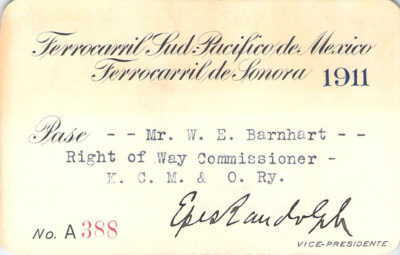 Ferrocarril Sud Pacifico de Mexico
Ferrocarril de Sonora 1911
Pase - - Mr. W. E. Barnhart - -
Right of Way Commissioner -
K. C. M. & O. Ry.
No. A 388
Epes Randolph
VICE-PRESIDENTE